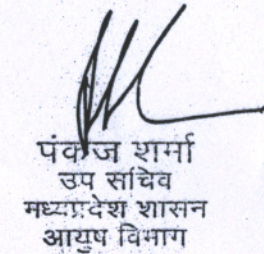 पंकज शर्मा
उप सचिव
मध्यप्रदेश शासन
आयुष विभाग